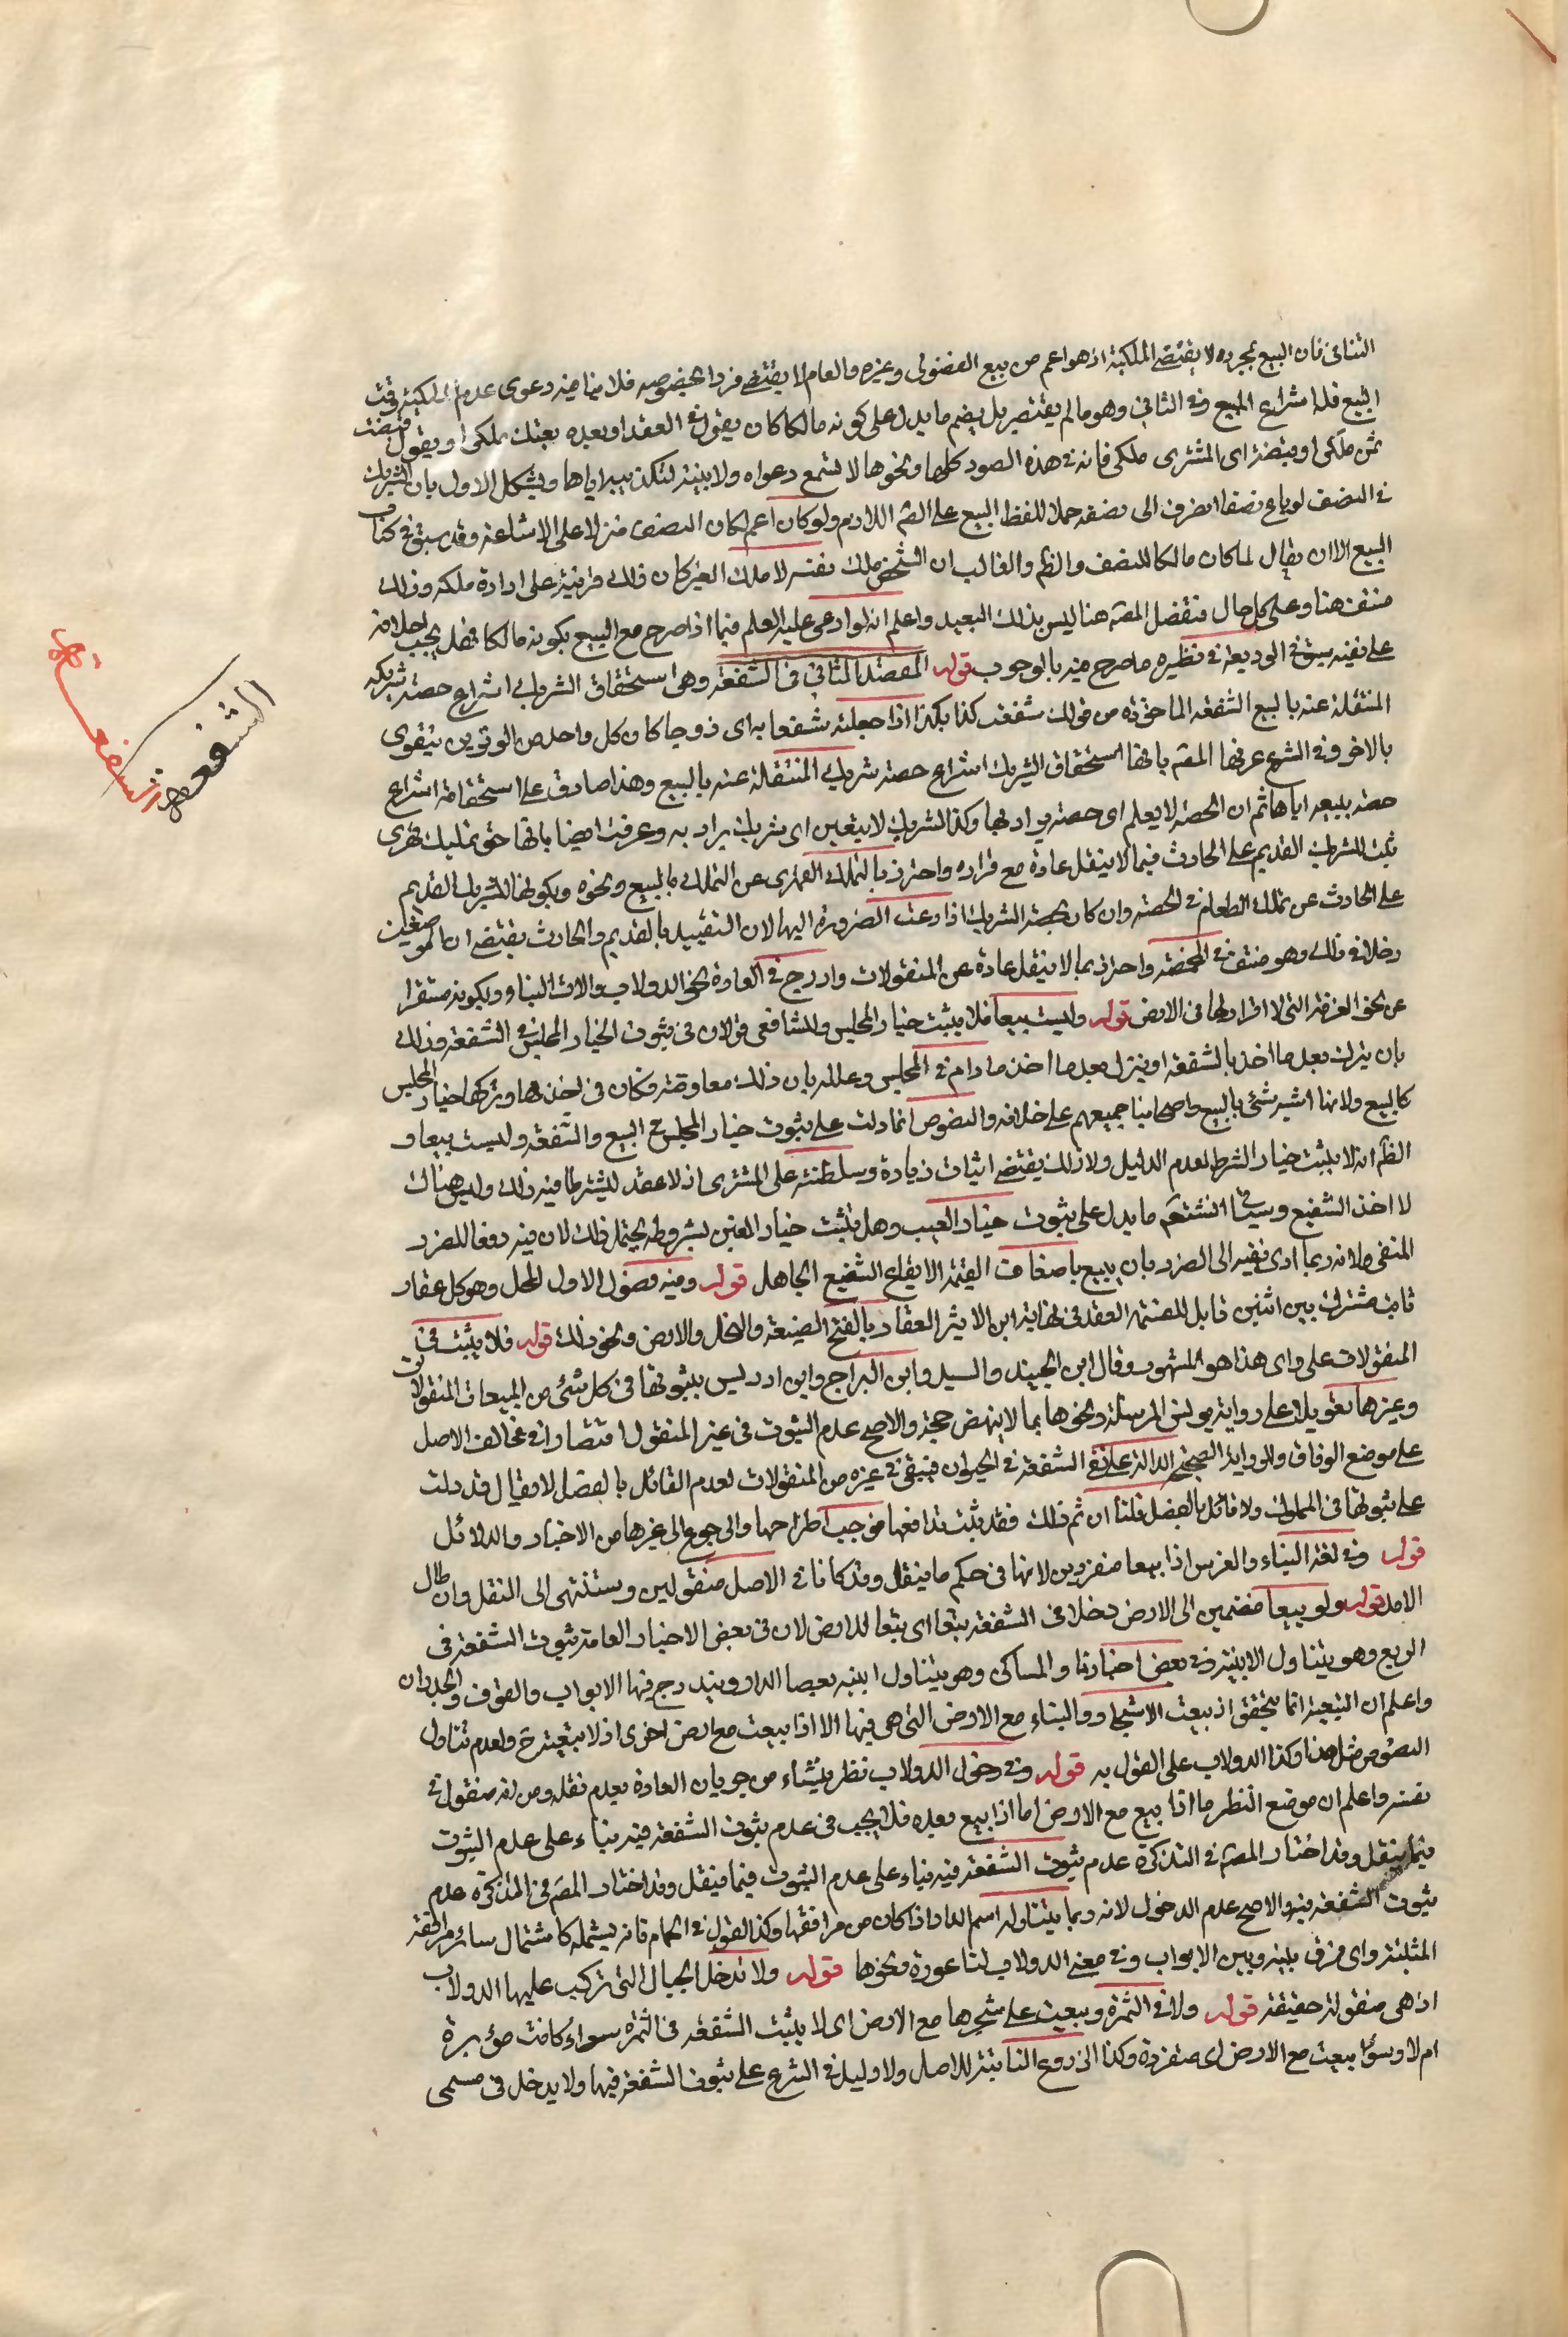 الثاني فان البيع بمجرده لا يقتضي الملكية اذ هو اعم من بيع الفضولي وغيره والعام لا يقتضي فردا بخصوصه فلا ينافيه دعوى عدم الملكية وقت
البيع فله انتزاع المبيع وفي الثاني وهو ما لم يقتصر بل يضم ما يدل على كونه مالكا كان يقول في العقد او بعده بعتك ملكي او يقول قبضت
ثمن ملكي او يقبضه اي المشتري ملكي فانه في هذه الصور كلها ونحوها لا تسمع دعواه ولا بينته لتكذيبه اياها ويشكل الاول بان الشريك
في النصف لو باع نصفا انصرف الى نصفه حملا للفظ البيع على اللازم ولو كان اعم لكان النصف منزلا على الاشاعة وقد سبق في كتاب
البيع الا ان يقال لما كان مالكا للنصف والظ والغالب ان الشخص ملك نفسه لا ملك الغير كان ذلك قرينة على ارادة ملكه وذلك
منتف هنا وعلى كل حال فتفصيل المص هنا ليس بذلك البعيد واعلم انه لو ادعى عليه العلم فيما اذا صرح مع البيع بكونه مالكا فهل يجب احلافه
على نفيه سبق في الوديعة في نظيره ما صرح فيه بالوجوب قوله المقصد الثاني في الشفعة وهي استحقاق الشريك انتزاع حصة شريكه
المنتقلة عنه بالبيع الشفعة الماخوذة من قولك شفعت كذا بكذا اذا جعلته شفعا به اي زوجا كان كل واحد من الوترين يتقوى
بالاخر وفي الشرع عرفها المص بانها استحقاق الشريك انتزاع حصة شريكه المنتقلة عنه بالبيع وهذا صادق على استحقاقه انتزاع
حصة ببيعه اياها ثم ان الحصة لا يعلم اي حصة يراد بها وكذا الشريك لا يتعين اي شريك يراد به وعرفت ايضا بانها حق تمليك قهري
يثبت للشريك القديم على الحادث فيما لا ينقل عادة مع قراره واحترز بالتملك القهري عن التملك بالبيع ونحوه وبكونها للشريك القديم
على الحادث عن تملك الطعام في المخمصة وان كان بحصة الشريك اذا دعت الضرورة اليها لان التقييد بالقديم والحادث يقتضي ان للوصفين
دخلا في ذلك وهو منتف في المخمصة واحترز بما لا ينقل عادة عن المنقولات وادرج في العادة نحو الدولاب والات البناء وبكونه مستقرا
عن نحو الغرفة التي لا قرار لها في الارض قوله وليست بيعا فلا يثبت خيار المجلس وللشافعي قولان في ثبوت الخيار المجلس في الشفعة وذلك
بان يترك بعد ما اخذ بالشفعة او ينزل بعد ما اخذ ما دام في المجلس وعلله بان ذلك معاوضة فكان في اخذها وتركها خيار المجلس
كالبيع ولانها اشبه شئ بالبيع واصحابنا جميعهم على خلافه والنصوص انما دلت على ثبوت خيار المجلس في البيع والشفعة وليست بيعا و
الظ انه لا يثبت خيار الشرط لعدم الدليل ولا ذلك يقتضي اثبات زيادة وسلطنة على المشتري اذ لا عقد ليشترط فيه ذلك وليس هناك
لا اخذ الشفيع وسياتي انشتعم ما يدل على ثبوت خيار العيب وهل يثبت خيار الغبن بشروطه يحتمل ذلك لان فيه دفعا للضرر
المنفي ولانه ربما ادى نفيه الى الضرر بان يبيع باضعاف القيمة لايقاع الشفيع الجاهل قوله وفيه فصول الاول المحل وهو كل عقار
ثابت مشترك بين اثنين قابل للقسمة العقد في نهاية ابن الاثير العقار بالفتح الضيعة والنخل والارض ونحو ذلك قوله فلا يثبت في
المنقولات على راي هذا هو المشهور وقال ابن الجنيد والسيد وابن البراج وابن ادريس بثبوتها في كل شئ من المبيعات المنقولات
وغيرها تعويلا على رواية يونس المرسلة ونحوها بما لا ينهض حجة والاصح عدم الثبوت في غير المنقول اقتصارا في مخالف الاصل
على موضع الوفاق وللرواية الصحيحة الدالة على نفي الشفعة في الحيوان فيبقى في غيره من المنقولات لعدم القائل بالفصل لا يقال قد دلت
على ثبوتها في المملوك ولا قائل بالفصل قلنا ان تم ذلك فقد يثبت تدافعها فوجب اطراحها والرجوع الى غيرها من الاخبار والدلائل
قوله وفي لغة البناء والغرس اذا بيعا منفردين لانها في حكم ما ينقل وقد كانا في الاصل منقولين وستنتهي الى النقل وان طال
الامد قوله ولو بيعا منضمين الى الارض دخلا في الشفعة تبعا اي تبعا للارض لان في بعض الاخبار العامة ثبوت الشفعة في
الربع وهو يتناول الابنية وفي بعض اخبارنا والمساكن وهو يتناول ابنية بعضا الدار ويندرج فيها الابواب والسقوف والجدران
واعلم ان التبعية انما يتحقق اذ بيعت الاشجار والبناء مع الارض التي هي فيها الا اذا بيعت مع ارض اخرى اذ لا تبعية ح ولعدم تناول
النصوص مثل هذا وكذا الدولاب على القول به قوله وفي دخول الدولاب نظر ينشاء من جريان العادة بعدم نقله ومن انه منقول في
نفسه واعلم ان موضع النظر ما اذا بيع مع الارض اما اذا بيع بعده فلا يجب في عدم ثبوت الشفعة فيه بناء على عدم الثبوت
فيما ينقل وقد اختار المص في التذكرة عدم ثبوت الشفعة فيه بناء على عدم الثبوت فيما ينقل وقد اختار المص في التذكرة عدم
ثبوت الشفعة فيه والاصح عدم الدخول لانه ربما يتناوله اسم الدار اذا كان من مرافقها وكذا القول في الحمام فانه يشمله كاشتمال سائر مرافقه
المثبتة واي فرق بينه وبين الابواب وفي معنى الدولاب الناعورة ونحوها قوله ولا تدخل الحبال التي تركب عليها الدولاب
اذ هي منقولة حقيقة قوله ولا في الثمرة وبيعت على شجرها مع الارض اي لا يثبت الشفعة في الثمرة سواء كانت مؤبرة
ام لا وسواء بيعت مع الارض اي منفردة وكذا الزروع الثابتة للاصل ولا دليل في الشرع على ثبوت الشفعة فيها ولا يدخل في مسمى
الشفعة
الشفعة